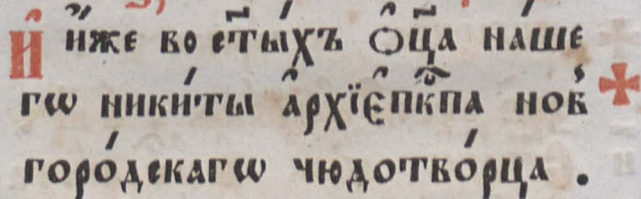 И҆ и҆́же во ст҃ы́хъ ѻ҆ц҃а̀ на́ше
гѡ ники́ты а҆рхїе҆пк҇па нов̾
горо́дскагѡ чюдотво́рца .